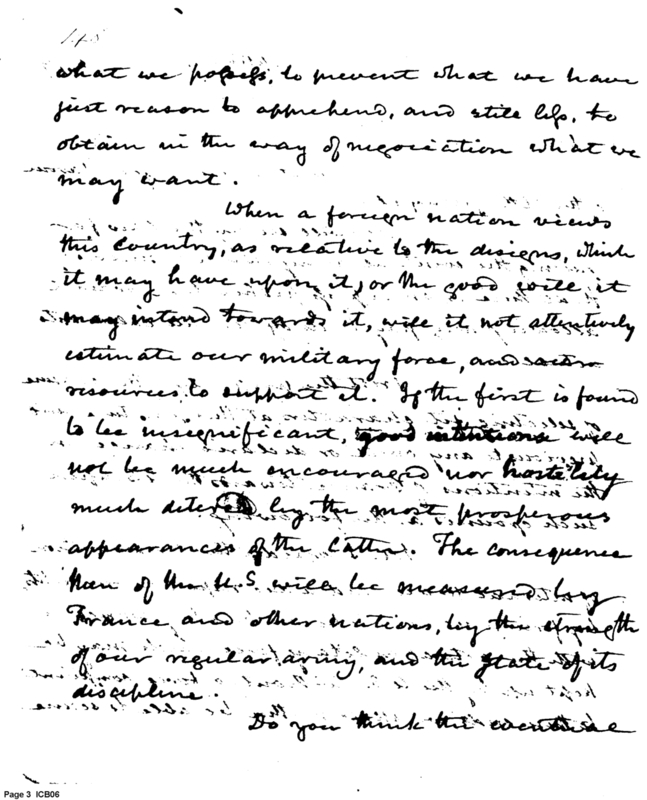 what we possess, to prevent what we have
just reason to apprehend, and still less, to
obtain in the way of negociation what we
may want.
When a foreign nation views
this Country, as relative to the designs, which
it may have upon it, or the good will it
may intend towards it, will it not attentively
estimate our military force, and
resources to support it. If the first is found
to be insignificant, good intentions will
not be much encouraged nor hostility
much detered by the most prosperous
appearances of the latter. The consequence
then of the U.S will be measured by
France and other nations, by the strength
of our regular army, and the state of its
discipline.
Do you think the eventual
Page 3 ICB06